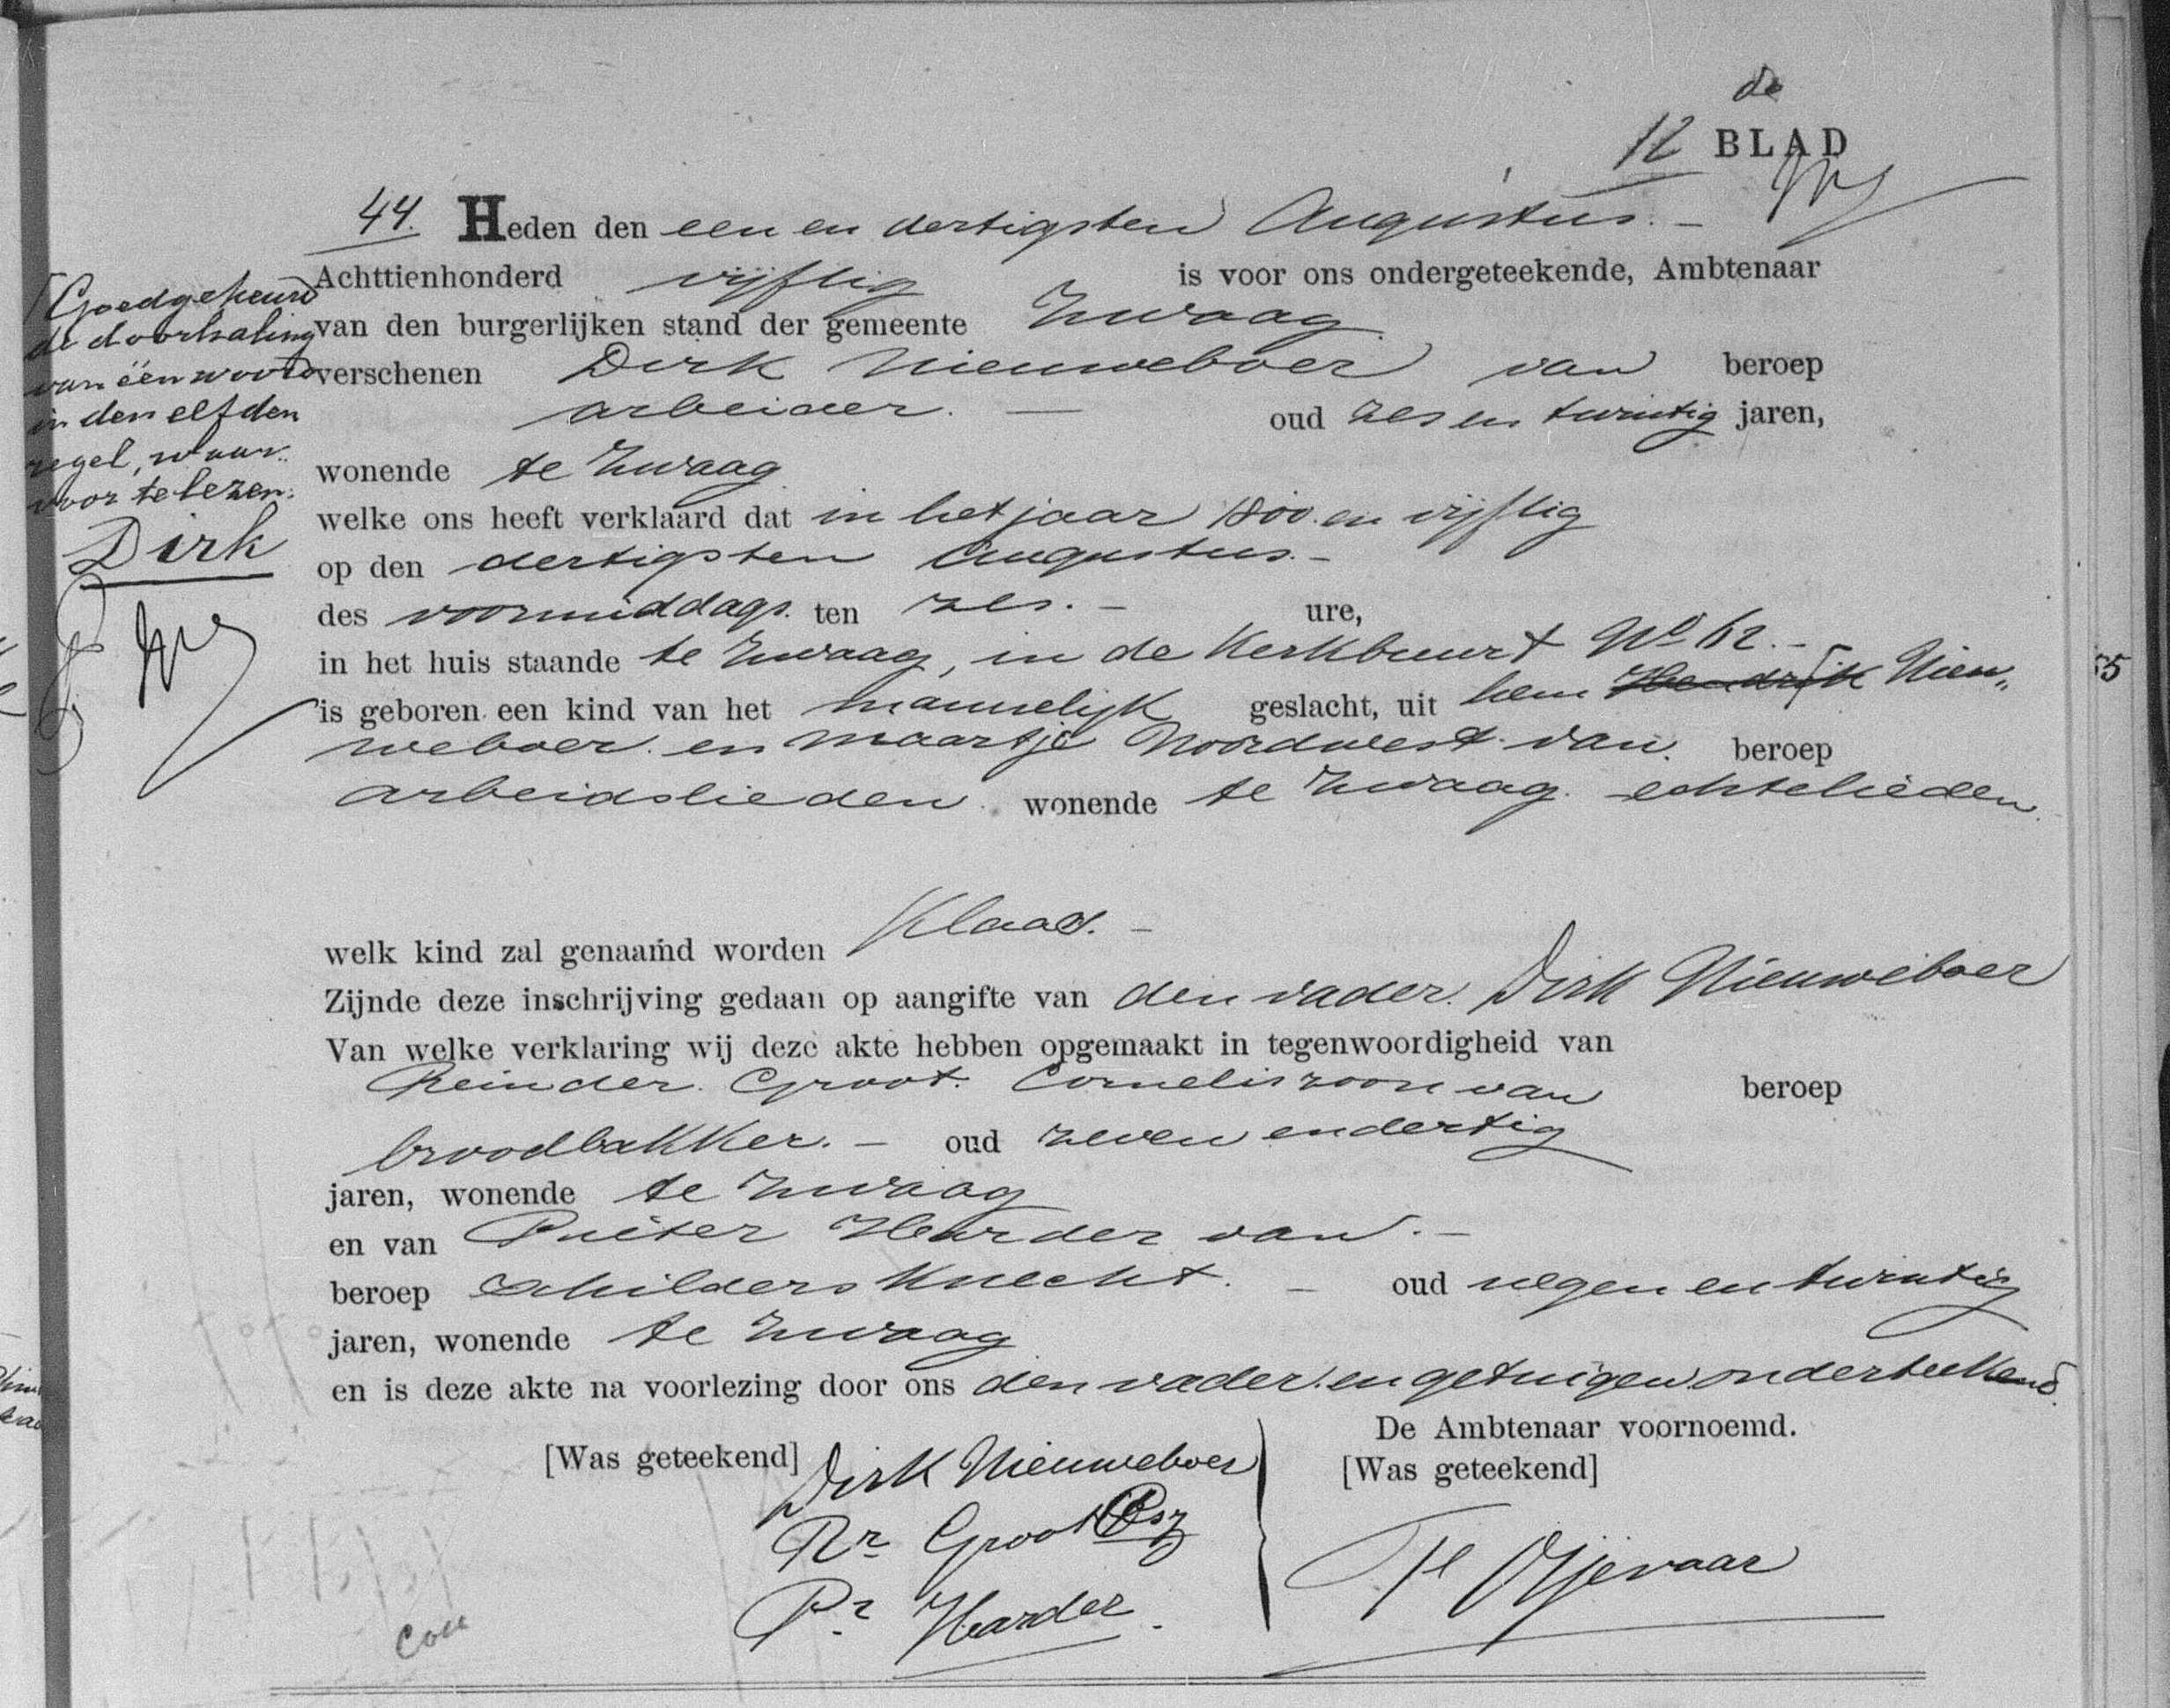 de
12 BLAD
44. Heden den een en dertigsten Augustus. -
Achttienhonderd vijftig is voor ons ondergeteekende, Ambtenaar
van den burgerlijken stand der gemeente Zwaag
verschenen Dirk Nieuweboer van beroep
arbeider. — oud zes en twintig jaren,
wonende te Zwaag
welke ons heeft verklaard dat in het jaar 1800 en vijftig
op den dertigsten Augustus. -
des voormiddags. ten zes. - ure,
in het huis staande te Zwaag, in de Kerkbuurt No 62. -
is geboren een kind van het mannelijk geslacht, uit hem Hendrik Nieu„
weboer. en Maartje Noordwest van. beroep
arbeidslieden. wonende te Zwaag. echtelieden.
welk kind zal genaamd worden Klaas. -
Zijnde deze inschrijving gedaan op aangifte van den vader. Dirk Nieuweboer
Van welke verklaring wij deze akte hebben opgemaakt in tegenwoordigheid van
Reinder. Groot. Corneliszoon van beroep
broodbakker. - oud zeven en dertig
jaren, wonende te Zwaag
en van Pieter Harder van. -
beroep schilders knecht. - oud negen en twintig
jaren, wonende te Zwaag
en is deze akte na voorlezing door ons den vader. en getuigen onderteekend.
De Ambtenaar voornoemd.
[Was geteekend] Dirk Nieuweboer [Was geteekend]
Rr Groot Csz
Pr Harder.
Ojevaar
[Goedgekeurd
de doorhaling
van één woord
in den elfden
regel, waar..
voor te lezen:
Dirk
con
55